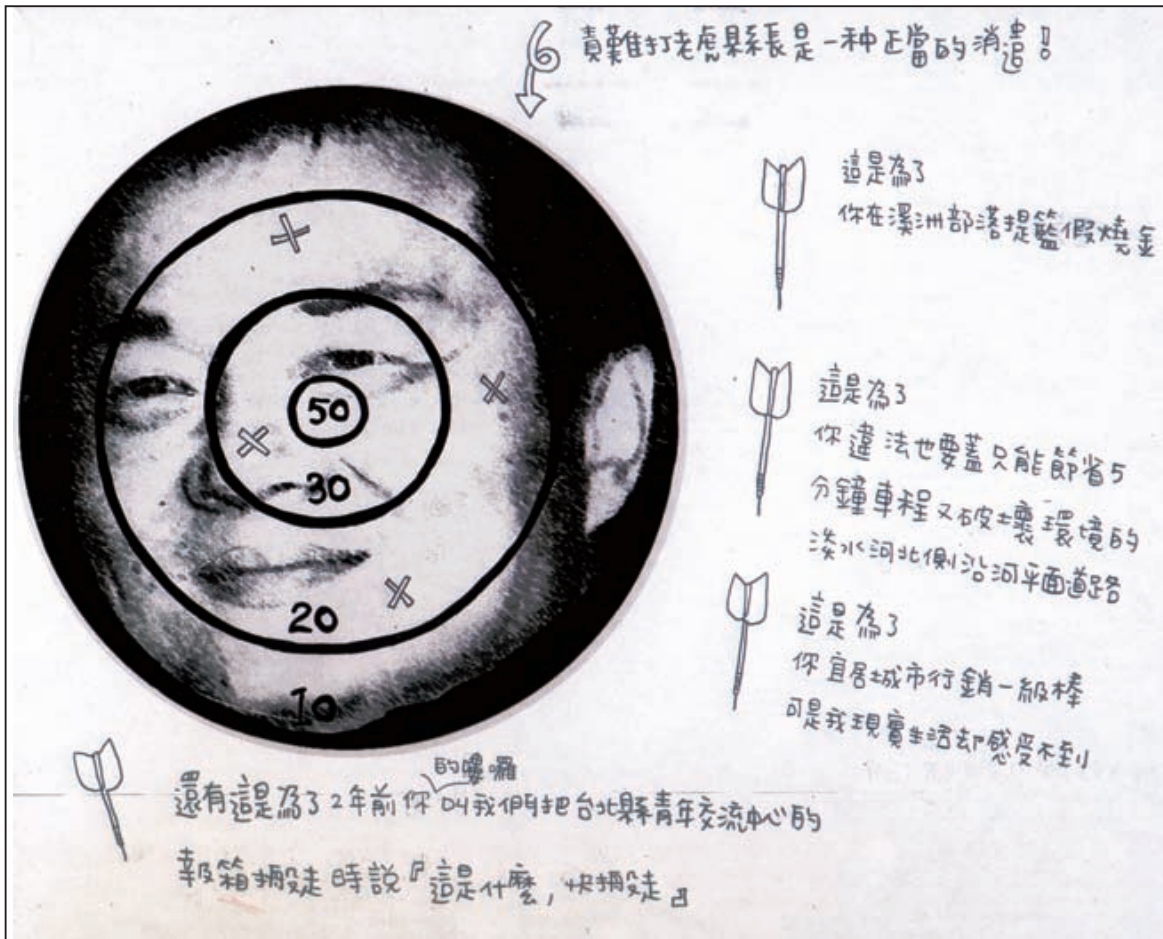 責難打老虎縣長是一种正當的消遣!
這是為了
你在溪洲部落提籃假燒金
50
30
20
10
這是為了
你違法也要蓋只能節省5
分鐘車程又破壞環境的
淡水河北側沿河平面道路
這是為了
你宜居城市行銷一級棒
可是我現實生活却感受不到
的嘍囉
還有這是為了2年前你叫我們把台北縣青年交流中心的
報箱搬走時說『這是什麼,快搬走』